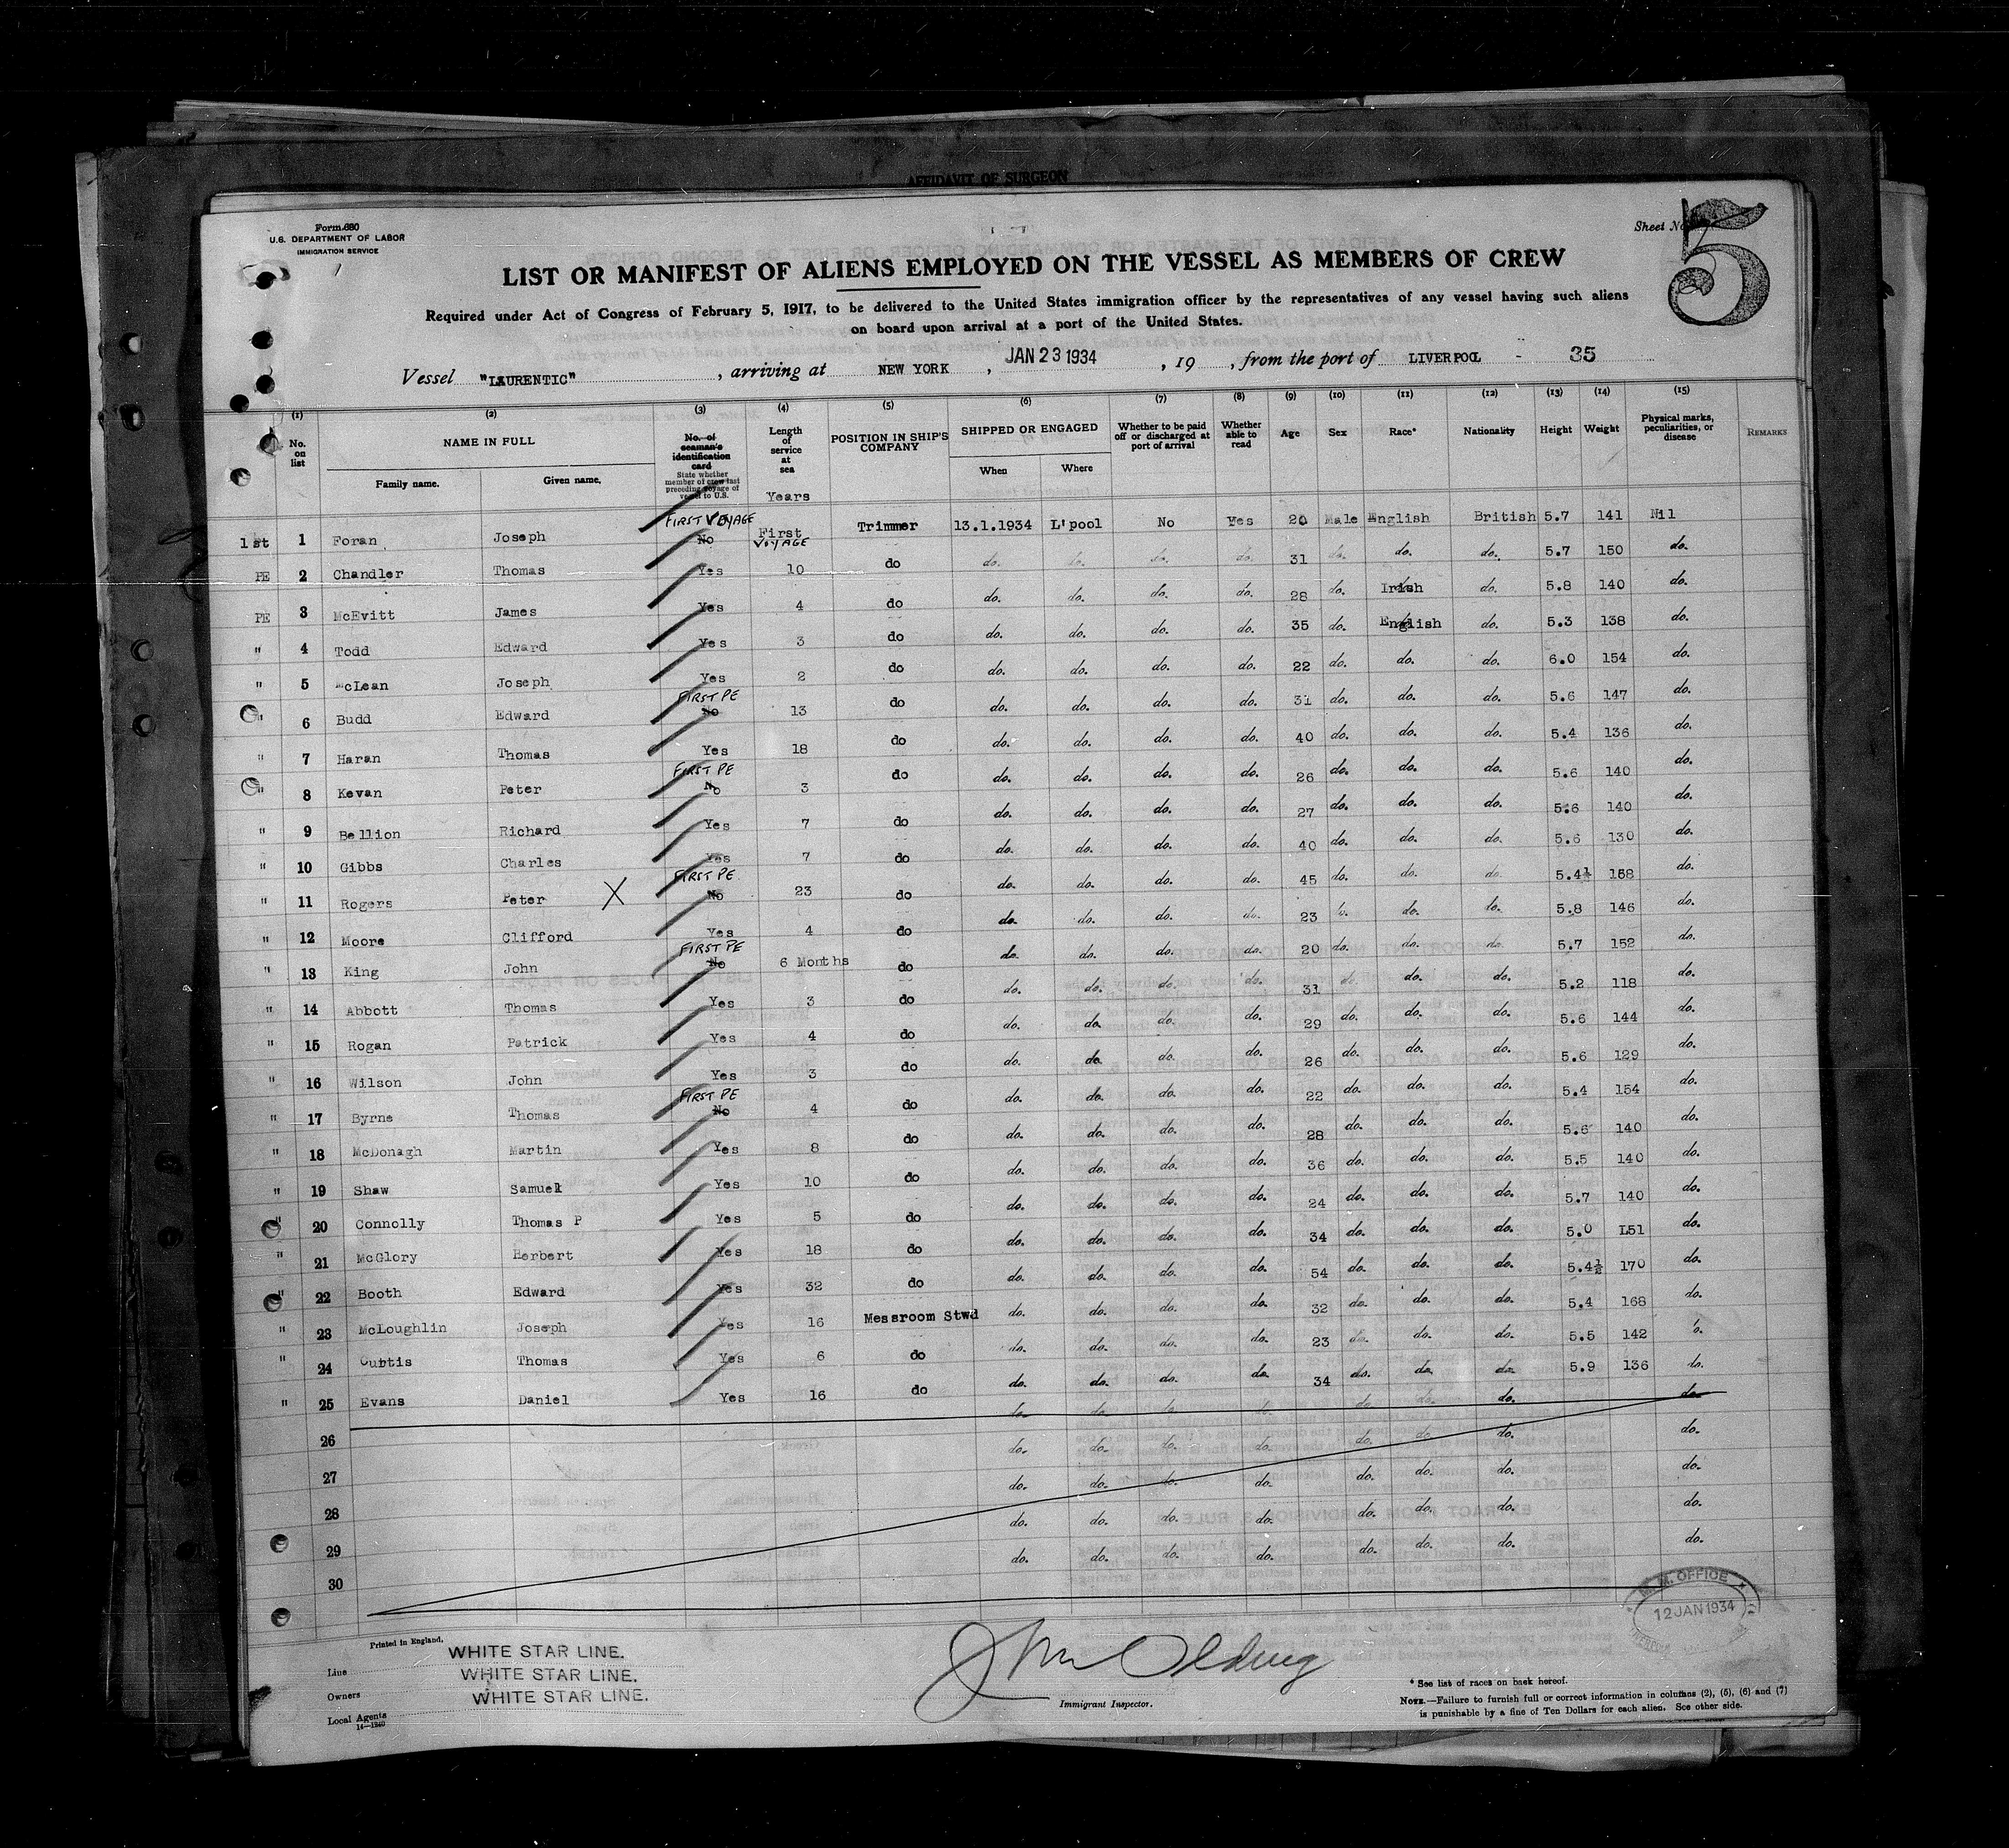 AFFIDAVIT OF SURGEON
Form 680
U.S. DEPARTMENT OF LABOR
IMMIGRATION SERVICE
Sheet No. 5
LIST OR MANIFEST OF ALIENS EMPLOYED ON THE VESSEL AS MEMBERS OF CREW
Required under Act of Congress of February 5, 1917, to be delivered to the United States immigration officer by the representatives of any vessel having such aliens
on board upon arrival at a port of the United States.
Vessel "LAURENTIC", arriving at NEW YORK, JAN 23 1934, 19 , from the port of LIVERPOOL - 35
(1) (2) (3) (4) (5) (6) (7) (8) (9) (10) (11) (12) (13) (14) (15)
No. on list NAME IN FULL Family name. Given name. No. of seaman's identification card State whether member of crew last preceding voyage of vessel to U.S. Length of service at sea Years POSITION IN SHIP'S COMPANY SHIPPED OR ENGAGED When Where Whether to be paid off or discharged at port of arrival Whether able to read Age Sex Race* Nationality Height Weight Physical marks, peculiarities, or disease REMARKS
1st 1 Foran Joseph FIRST VOYAGE No First VOYAGE Trimmer 13.1.1934 L'pool No Yes 20 Male English British 5.7 141 Nil
PE 2 Chandler Thomas Yes 10 do do. do. do. do. 31 do. do. do. 5.7 150 do.
PE 3 McEvitt James Yes 4 do do. do. do. do. 28 do. Irish do. 5.8 140 do.
" 4 Todd Edward Yes 3 do do. do. do. do. 35 do. English do. 5.3 138 do.
" 5 McLean Joseph Yes 2 do do. do. do. do. 22 do. do. do. 6.0 154 do.
" 6 Budd Edward FIRST PE No 13 do do. do. do. do. 31 do. do. do. 5.6 147 do.
" 7 Haran Thomas Yes 18 do do. do. do. do. 40 do. do. do. 5.4 136 do.
" 8 Kevan Peter FIRST PE No 3 do do. do. do. do. 26 do. do. do. 5.6 140 do.
" 9 Bellion Richard Yes 7 do do. do. do. do. 27 do. do. do. 5.6 140 do.
" 10 Gibbs Charles Yes 7 do do. do. do. do. 40 do. do. do. 5.6 130 do.
" 11 Rogers Peter X FIRST PE No 23 do do. do. do. do. 45 do. do. do. 5.4½ 158 do.
" 12 Moore Clifford Yes 4 do do. do. do. do. 23 do. do. do. 5.8 146 do.
" 13 King John FIRST PE No 6 Months do do. do. do. do. 20 do. do. do. 5.7 152 do.
" 14 Abbott Thomas Yes 3 do do. do. do. do. 31 do. do. do. 5.2 118 do.
" 15 Rogan Patrick Yes 4 do do. do. do. do. 29 do. do. do. 5.6 144 do.
" 16 Wilson John Yes 3 do do. do. do. do. 26 do. do. do. 5.6 129 do.
" 17 Byrne Thomas FIRST PE No 4 do do. do. do. do. 22 do. do. do. 5.4 154 do.
" 18 McDonagh Martin Yes 8 do do. do. do. do. 28 do. do. do. 5.6 140 do.
" 19 Shaw Samuel Yes 10 do do. do. do. do. 36 do. do. do. 5.5 140 do.
" 20 Connolly Thomas P Yes 5 do do. do. do. do. 24 do. do. do. 5.7 140 do.
" 21 McGlory Herbert Yes 18 do do. do. do. do. 34 do. do. do. 5.0 L51 do.
" 22 Booth Edward Yes 32 do do. do. do. do. 54 do. do. do. 5.4½ 170 do.
" 23 McLoughlin Joseph Yes 16 Messroom Stwd do. do. do. do. 32 do. do. do. 5.4 168 do.
" 24 Curtis Thomas Yes 6 do do. do. do. do. 23 do. do. do. 5.5 142 do.
" 25 Evans Daniel Yes 16 do do. do. do. do. 34 do. do. do. 5.9 136 do.
26 do. do. do. do. do. do. do. do.
27 do. do. do. do. do. do. do. do.
28 do. do. do. do. do. do. do. do.
29 do. do. do. do. do. do. do. do.
30 do. do. do. do. do. do. do. do.
Printed in England.
Line WHITE STAR LINE.
Owners WHITE STAR LINE.
Local Agents WHITE STAR LINE.
14—1240
Immigrant Inspector.
M.M. OFFICE
12 JAN 1934
* See list of races on back hereof.
NOTE.—Failure to furnish full or correct information in columns (2), (5), (6) and (7)
is punishable by a fine of Ten Dollars for each alien. See other side.